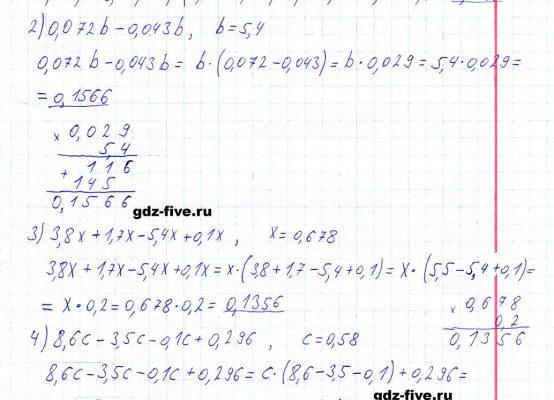 2) 0,072b − 0,043b, b = 5,4
0,072b − 0,043b = b · (0,072 − 0,043) = b · 0,029 = 5,4 · 0,029 =
= 0,1566
× 0,029
5,4
+ 116
145
0,1566
gdz-five.ru
3) 3,8x + 1,7x − 5,4x + 0,1x, x = 0,678
3,8x + 1,7x − 5,4x + 0,1x = x · (3,8 + 1,7 − 5,4 + 0,1) = x · (5,5 − 5,4 + 0,1) =
= x · 0,2 = 0,678 · 0,2 = 0,1356
× 0,678
0,2
0,1356
4) 8,6c − 3,5c − 0,1c + 0,296, c = 0,58
8,6c − 3,5c − 0,1c + 0,296 = c · (8,6 − 3,5 − 0,1) + 0,296 =
gdz-five.ru